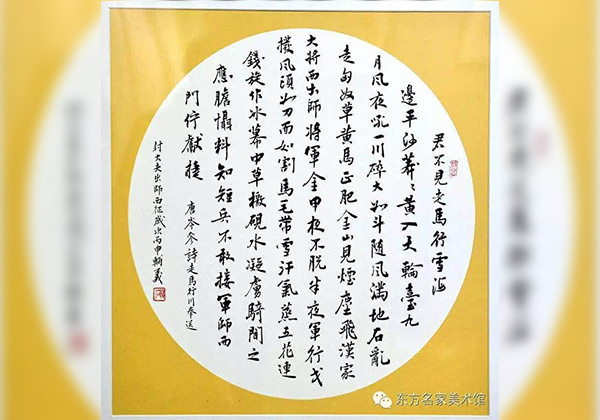 君不見走馬行雪海
邊平沙莽々黃入天輪臺九
月風夜吼一川碎大如斗随風滿地石亂
走匈奴草黃馬正肥金山見煙塵飛漢家
大將西出師將軍金甲夜不脫半夜軍行戈
撥風頭如刀面如割馬毛帶雪汗氣蒸五花連
錢旋作冰幕中草檄硯水凝虜騎聞之
應膽懾料知短兵不敢接軍師西
門佇獻捷 唐岑參詩走馬行川奉送
封大夫出師西征歲次丙申
东方名家美术馆